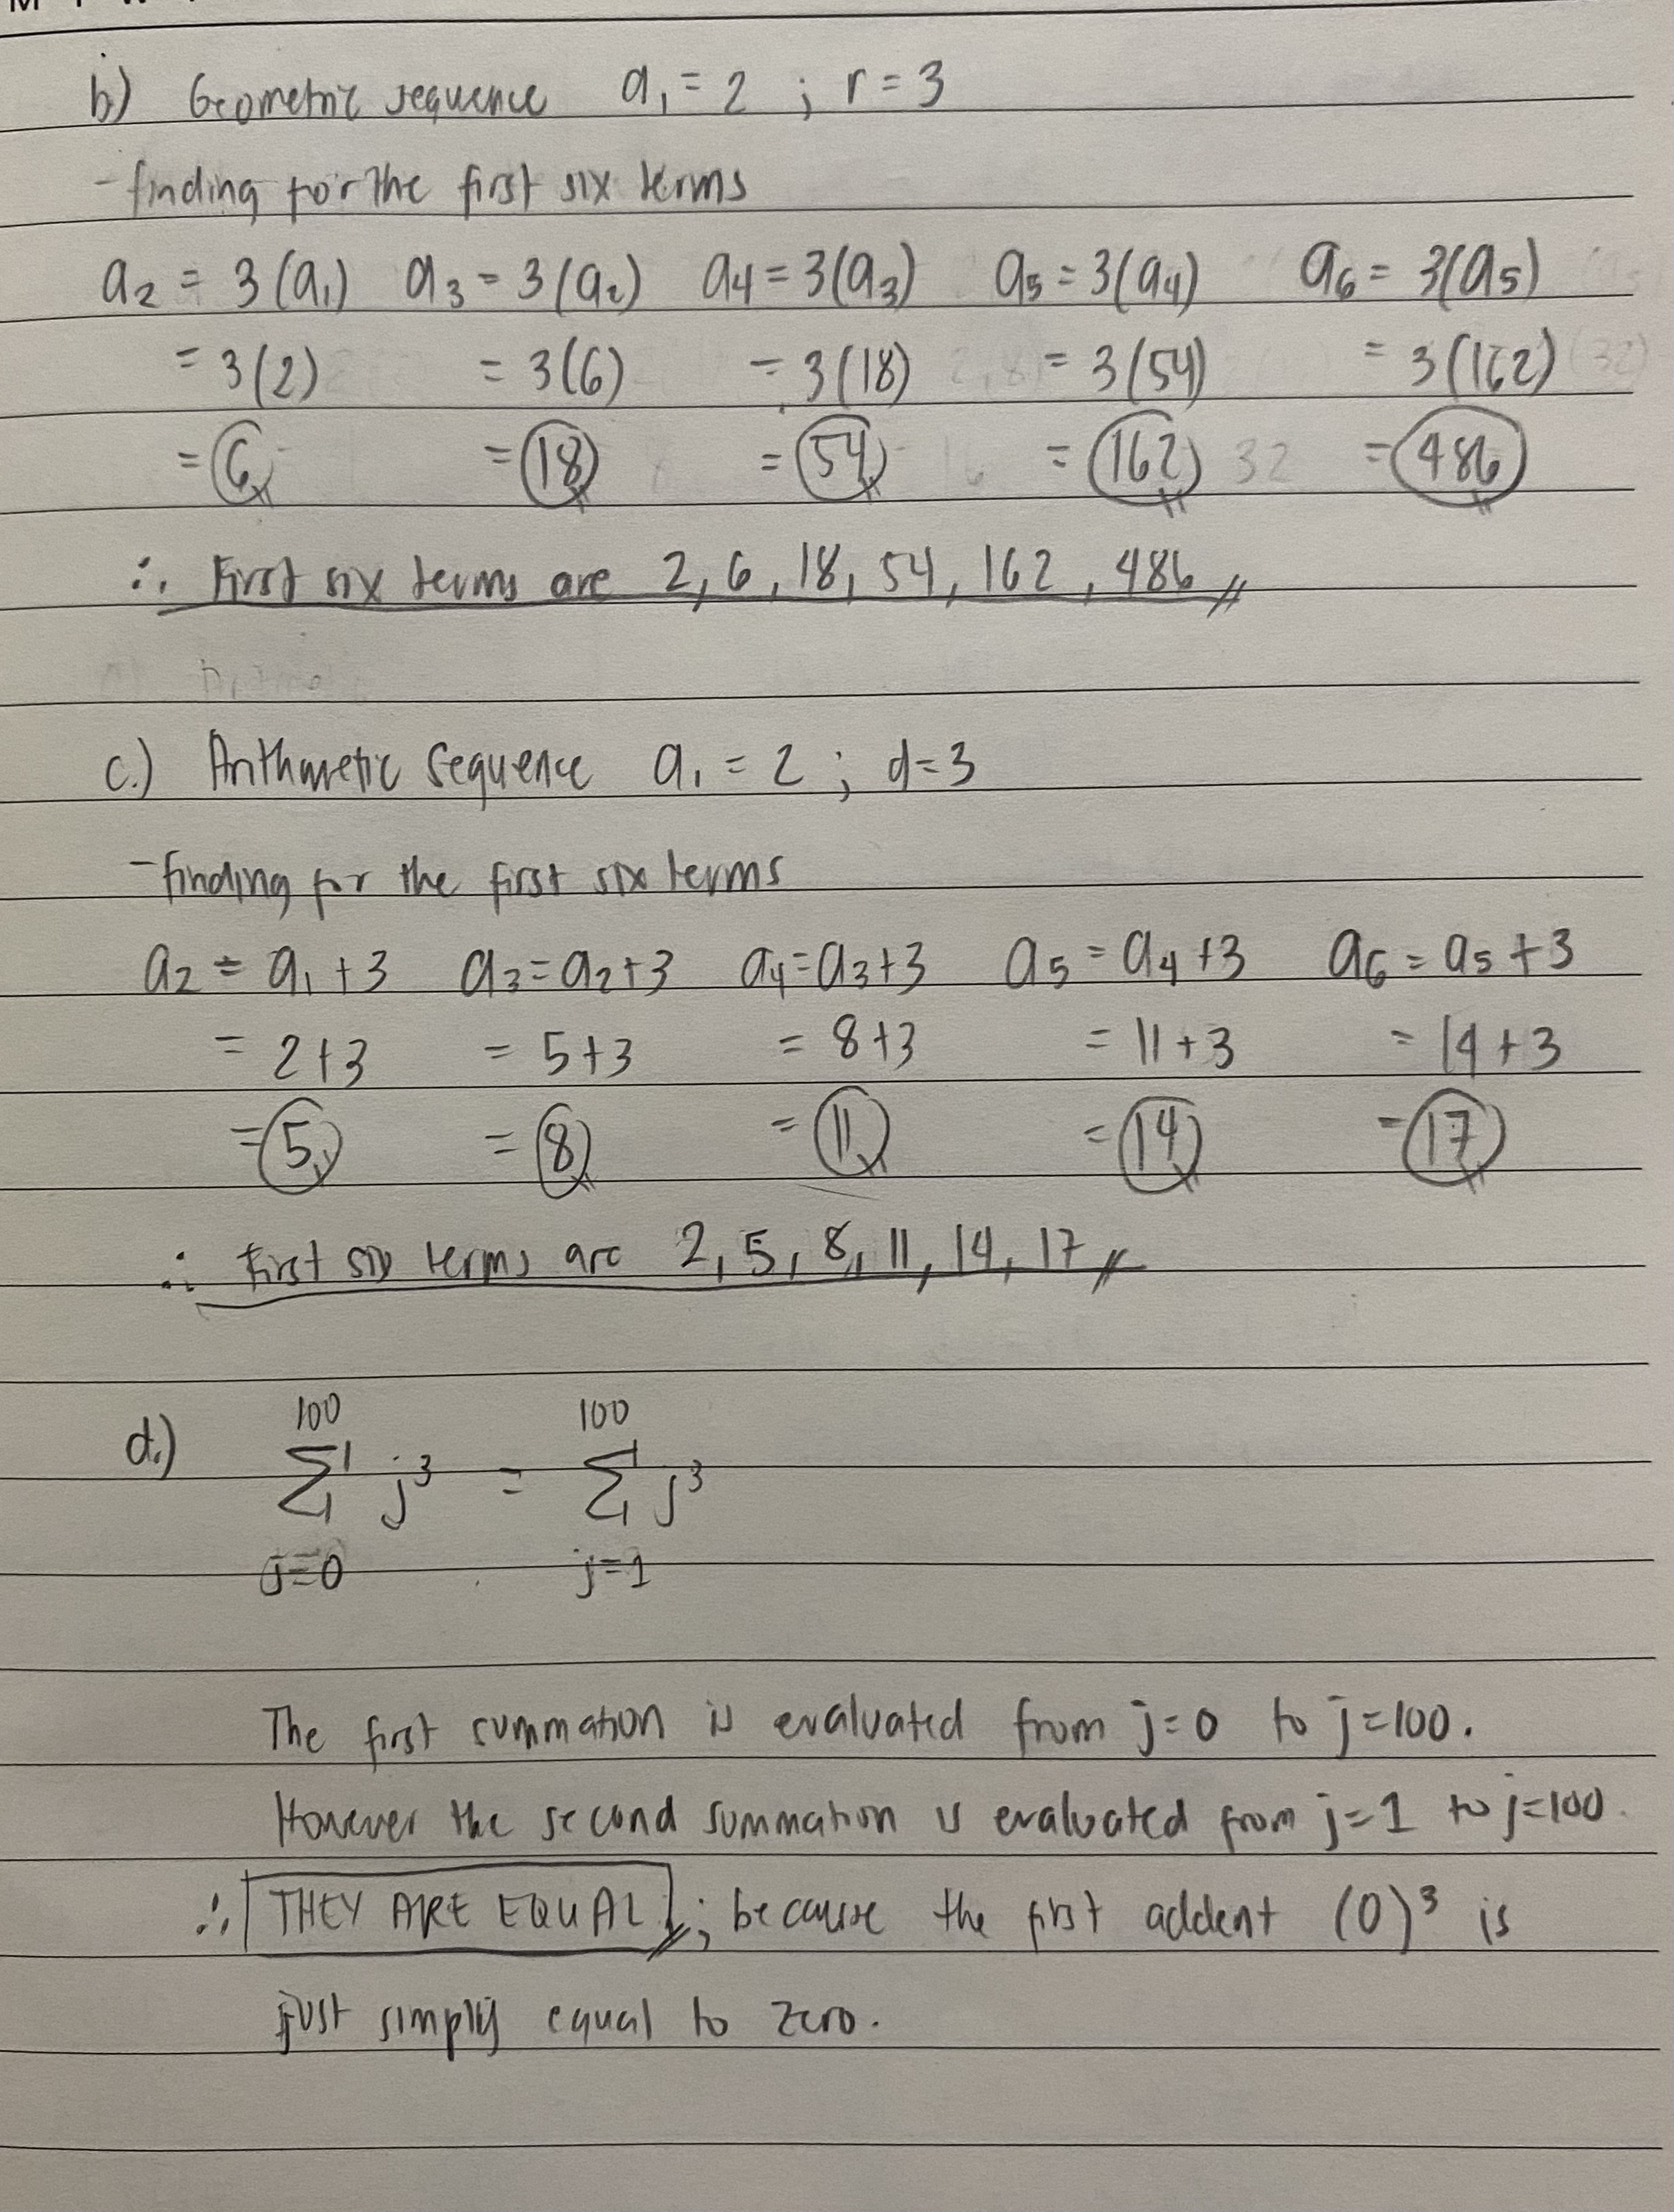 b) Geometric sequence a₁ = 2 ; r = 3
- finding for the first six terms
a₂ = 3(a₁) a₃ = 3(a₂) a₄ = 3(a₃) a₅ = 3(a₄) a₆ = 3(a₅)
= 3(2) = 3(6) = 3(18) = 3(54) = 3(162)
= 6 = 18 = 54 = 162 = 486
∴ First six terms are 2, 6, 18, 54, 162, 486 //
c.) Arithmetic Sequence a₁ = 2 ; d = 3
- finding for the first six terms
a₂ = a₁ + 3 a₃ = a₂ + 3 a₄ = a₃ + 3 a₅ = a₄ + 3 a₆ = a₅ + 3
= 2 + 3 = 5 + 3 = 8 + 3 = 11 + 3 = 14 + 3
= 5 = 8 = 11 = 14 = 17
∴ First six terms are 2, 5, 8, 11, 14, 17 //
100 100
d.) Σ j³ = Σ j³
j=0 j=1
The first summation is evaluated from j=0 to j=100.
However the second summation is evaluated from j=1 to j=100.
∴ THEY ARE EQUAL // ; because the first addent (0)³ is
just simply equal to zero.